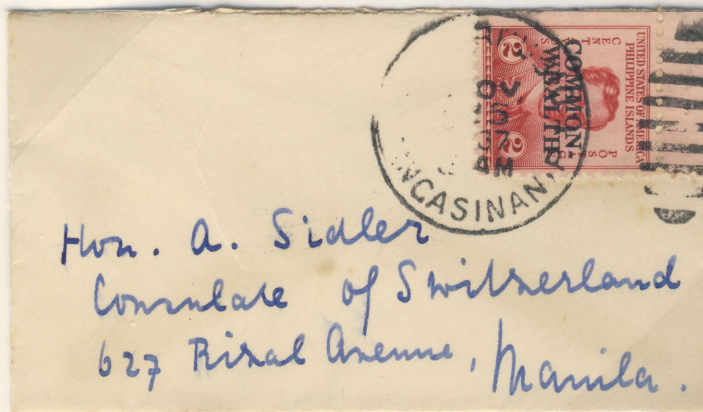 UNITED STATES OF AMERICA
PHILIPPINE ISLANDS
CENTS
POS
2 2
COMMON-
WEALTH
AM
NGASINAN, P
Hon. A. Sidler
Consulate of Switzerland
627 Rizal Avenue, Manila.